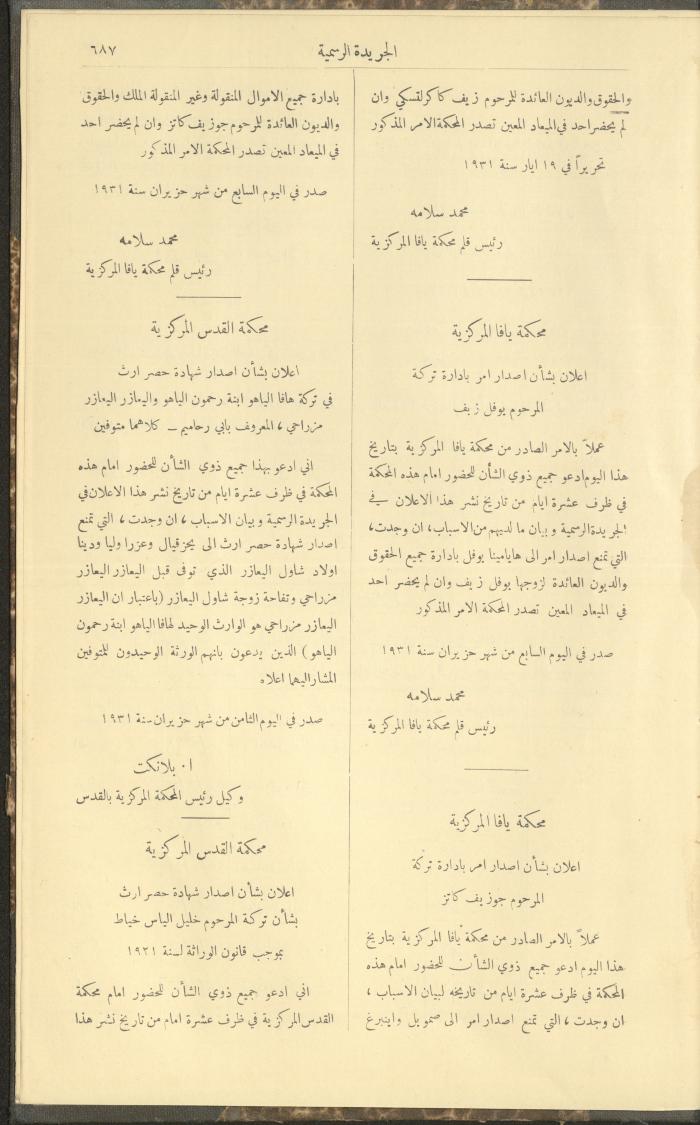 الجريدة الرسمية
٦٨٧
والحقوق والديون العائدة للمرحوم زيف كاكرلتسكي وان
لم يحضر احد في الميعاد المعين تصدر المحكمة الامر المذكور
تحريراً في ١٩ ايار سنة ١٩٣١
محمد سلامه
رئيس قلم محكمة يافا المركزية
محكمة يافا المركزية
اعلان بشأن اصدار امر بادارة تركة
المرحوم يوفل زيف
عملاً بالامر الصادر من محكمة يافا المركزية بتاريخ
هذا اليوم ادعو جميع ذوي الشأن للحضور امام هذه المحكمة
في ظرف عشرة ايام من تاريخ نشر هذا الاعلان في
الجريدة الرسمية وبيان ما لديهم من الاسباب، ان وجدت،
التي تمنع اصدار امر الى هايامينا يوفل بادارة جميع الحقوق
والديون العائدة لزوجها يوفل زيف وان لم يحضر احد
في الميعاد المعين تصدر المحكمة الامر المذكور
صدر في اليوم السابع من شهر حزيران سنة ١٩٣١
محمد سلامه
رئيس قلم محكمة يافا المركزية
محكمة يافا المركزية
اعلان بشأن اصدار امر بادارة تركة
المرحوم جوزيف كاتز
عملاً بالامر الصادر من محكمة يافا المركزية بتاريخ
هذا اليوم ادعو جميع ذوي الشأن للحضور امام هذه
المحكمة في ظرف عشرة ايام من تاريخه لبيان الاسباب ،
ان وجدت ، التي تمنع اصدار امر الى صمويل واينبرغ
بادارة جميع الاموال المنقولة وغير المنقولة الملك والحقوق
والديون العائدة للمرحوم جوزيف كاتز وان لم يحضر احد
في الميعاد المعين تصدر المحكمة الامر المذكور
صدر في اليوم السابع من شهر حزيران سنة ١٩٣١
محمد سلامه
رئيس قلم محكمة يافا المركزية
محكمة القدس المركزية
اعلان بشأن اصدار شهادة حصر ارث
في تركة هافا الياهو ابنة رحمون الياهو واليعازر اليعازر
مزراحي ، المعروف بابي رحاميم – كلاهما متوفين
اني ادعو بهذا جميع ذوي الشأن للحضور امام هذه
المحكمة في ظرف عشرة ايام من تاريخ نشر هذا الاعلان في
الجريدة الرسمية وبيان الاسباب ، ان وجدت ، التي تمنع
اصدار شهادة حصر ارث الى يحزقيال وعزرا وليا ودينا
اولاد شاول اليعازر الذي توفى قبل اليعازر اليعازر
مزراحي وتفاحة زوجة شاول اليعازر (باعتبار ان اليعازر
اليعازر مزراحي هو الوارث الوحيد لهافا الياهو ابنة رحمون
الياهو) الذين يدعون بانهم الورثة الوحيدون للمتوفين
المشار اليهما اعلاه
صدر في اليوم الثامن من شهر حزيران سنة ١٩٣١
ا. بلانكت
وكيل رئيس المحكمة المركزية بالقدس
محكمة القدس المركزية
اعلان بشأن اصدار شهادة حصر ارث
بشأن تركة المرحوم خليل الياس خياط
بموجب قانون الوراثة لسنة ١٩٢١
اني ادعو جميع ذوي الشأن للحضور امام محكمة
القدس المركزية في ظرف عشرة امام من تاريخ نشر هذا